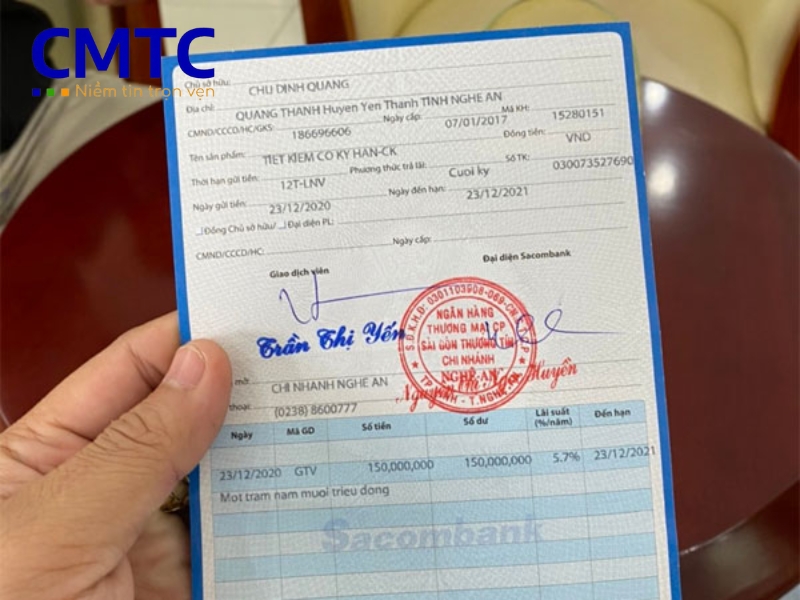 CMTC
Niềm tin trọn vẹn
Chủ sở hữu: CHU DINH QUANG
Địa chỉ: QUANG THANH Huyen Yen Thanh TINH NGHE AN
CMND/CCCD/HC/GKS: 186696606 Ngày cấp: 07/01/2017 Mã KH: 15280151
Tên sản phẩm: TIET KIEM CO KY HAN-CK Đồng tiền: VND
Thời hạn gửi tiền: 12T-LNV Phương thức trả lãi: Cuoi ky Số TK: 030073527690
Ngày gửi tiền: 23/12/2020 Ngày đến hạn: 23/12/2021
Đồng Chủ sở hữu/ Đại diện PL:
CMND/CCCD/HC: Ngày cấp:
Giao dịch viên Đại diện Sacombank
S.Đ.K.H.Đ: 0301103908-069-CN
NGÂN HÀNG
THƯƠNG MẠI CP
SÀI GÒN THƯƠNG TÍN
CHI NHÁNH
NGHỆ AN
TP. VINH - T. NGHỆ AN
Trần Thị Yến
Huyền
mở: CHI NHANH NGHE AN
thoại: (0238) 8600777
Ngày Mã GD Số tiền Số dư Lãi suất (%/năm) Đến hạn
23/12/2020 GTV 150,000,000 150,000,000 5.7% 23/12/2021
Mot tram nam muoi trieu dong
Sacombank